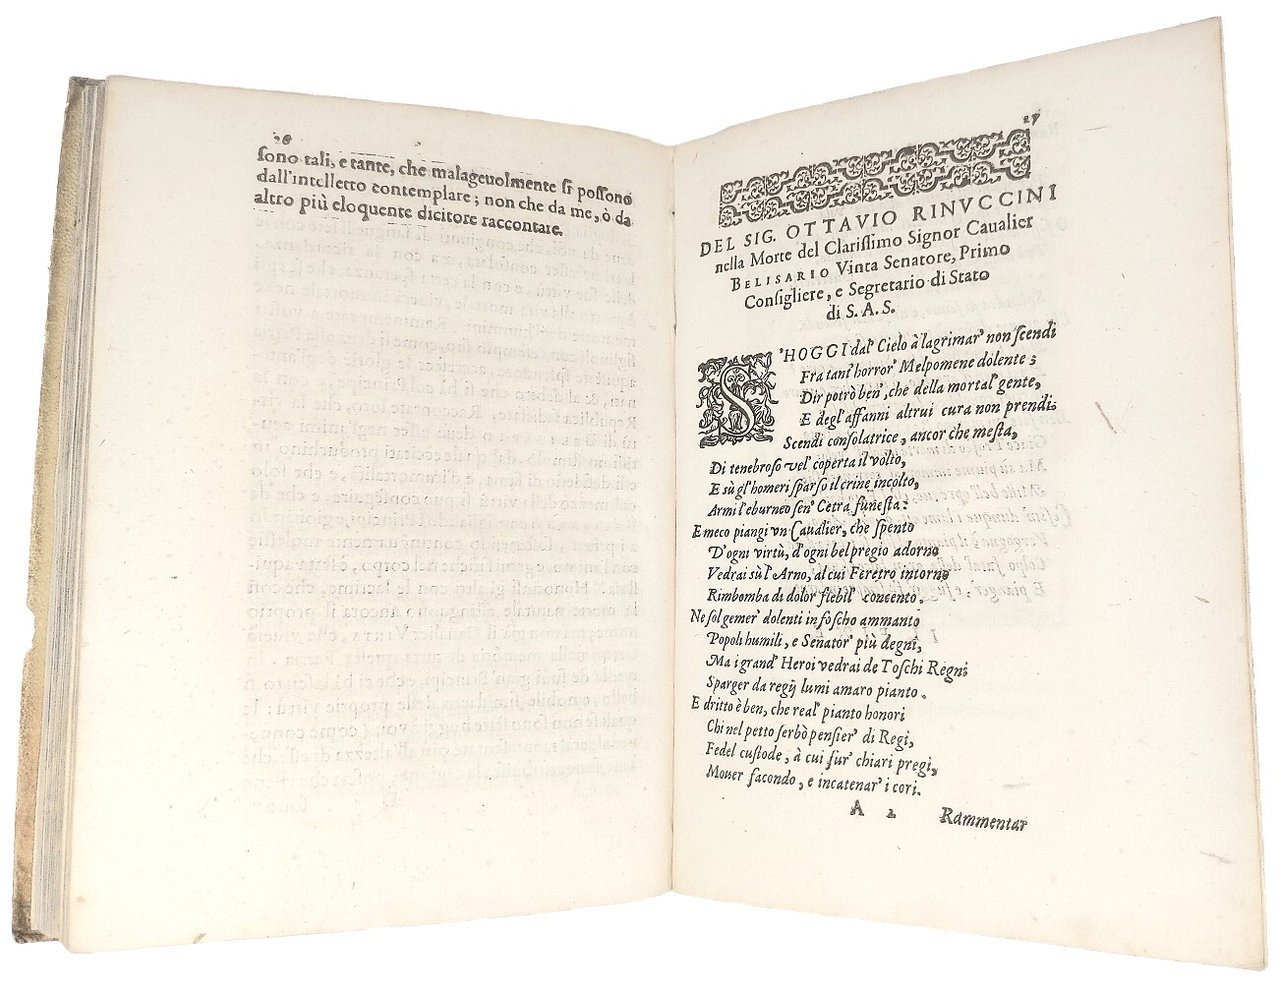 26
ſono tali, e tante, che malageuolmente ſi poſſono
dall'intelletto contemplare; non che da me, ò da
altro più eloquente dicitore raccontare.
27
DEL SIG. OTTAVIO RINVCCINI
nella Morte del Clariſſimo Signor Caualier
BELISARIO Vinta Senatore, Primo
Conſigliere, e Segretario di Stato
di S. A. S.
S'HOGGI dal' Cielo à lagrimar' non ſcendi
Fra tant' horror' Melpomene dolente;
Dir potrò ben', che della mortal' gente,
E degl' affanni altrui cura non prendi.
Scendi conſolatrice, ancor che meſta,
Di tenebroso vel' coperta il volto,
E sù gl' homeri ſparſo il crine incolto,
Armi l'eburneo ſen' Cetra funeſta:
E meco piangi vn Caualier, che ſpento
D'ogni virtù, d'ogni bel pregio adorno
Vedrai sù l'Arno, al cui Feretro intorno
Rimbomba di dolor' flebil' concento.
Ne ſol gemer' dolenti in foſcho ammanto
Popoli humili, e Senator' più degni,
Ma i grand' Heroi vedrai de Toſchi Regni
Sparger da regÿ lumi amaro pianto.
E dritto è ben, che real' pianto honori
Chi nel petto ſerbò penſier' di Regi,
Fedel cuſtode, à cui fur' chiari pregi,
Mouer facondo, e incatenar' i cori.
A 2 Rammentar